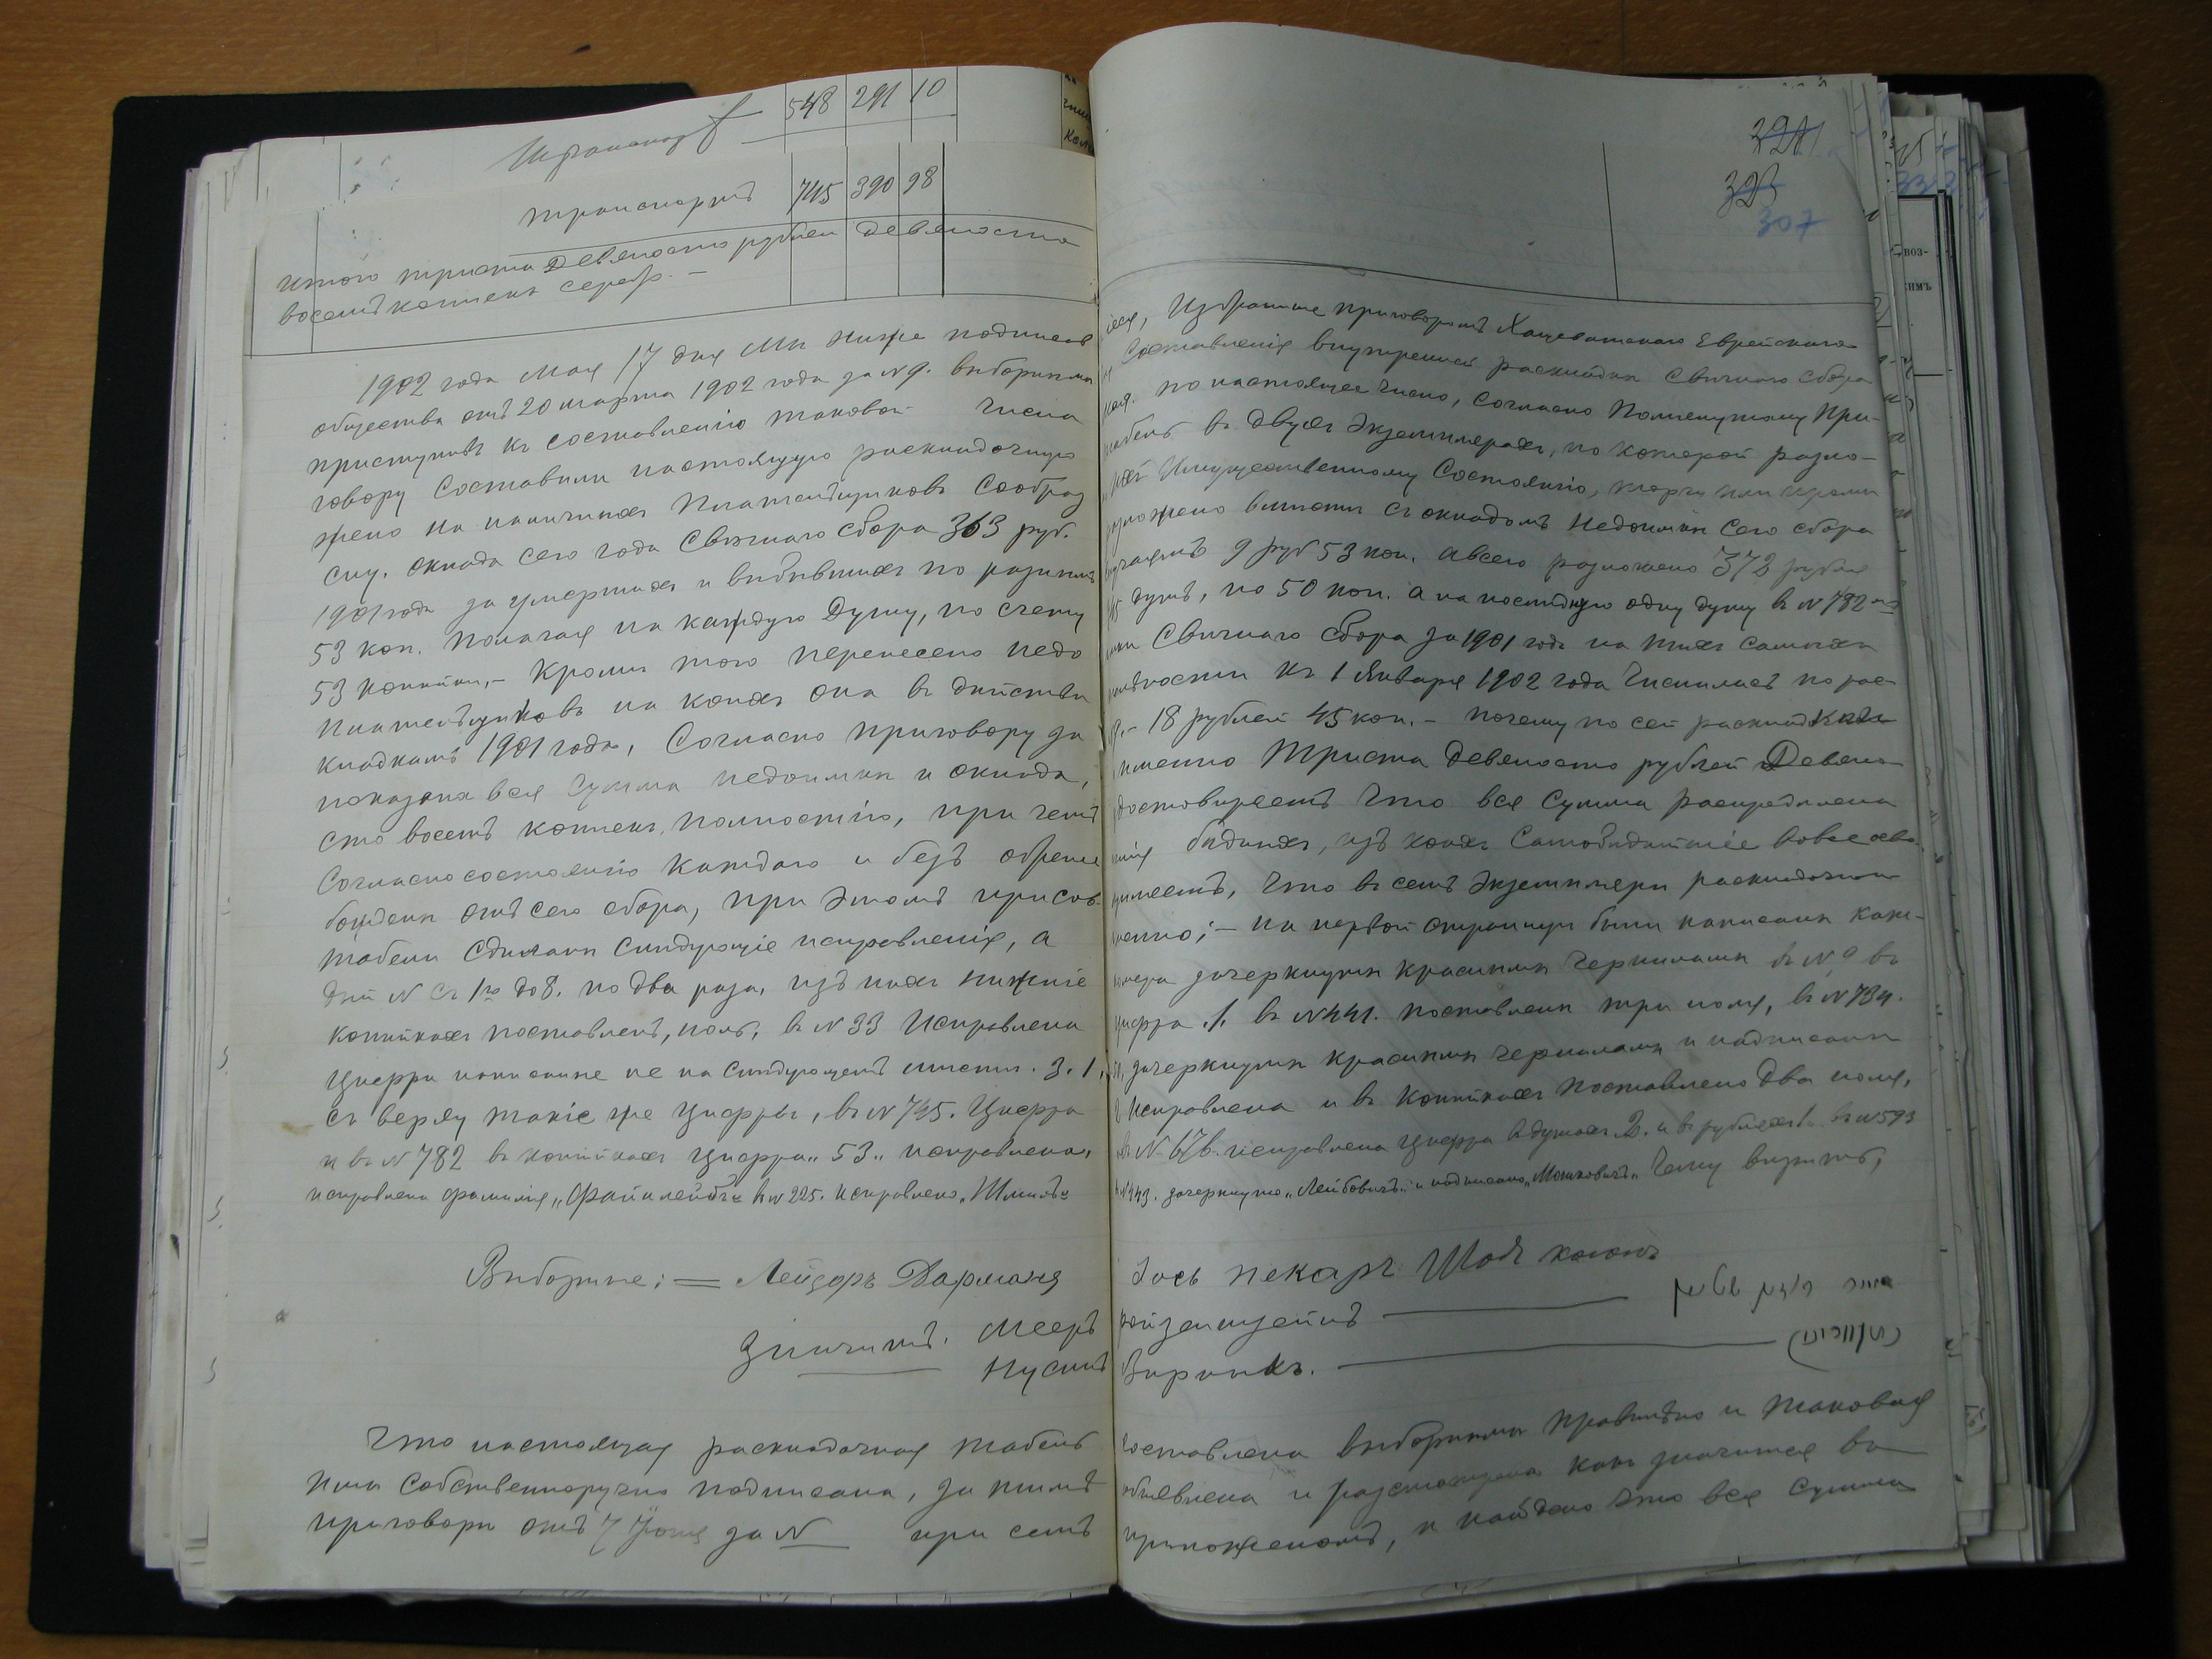 Транспортъ 548 291 10
транспортъ 745 390 98
итого триста девяносто рублей девяносто
восемь копеекъ сереб. —
291
323
307
1902 года Мая 17 дня Мы ниже подписав іеся, Избранные приговоромъ Хащеватскаго Еврейскаго
общества отъ 20 марта 1902 года за № 9. выборными Составленія внутренней раскладки Свѣчнаго сбора
приступивъ къ составленію таковой числа мая. по настоящее число, согласно Помянутому При-
говору Составили настоящую раскладочную табель въ двухъ Экземплярахъ, по которой разло-
жено на наличныхъ Плательщиковъ Сообраз Имущественному Состоянію, торгу или промы
слу. оклада сего года Свѣчнаго сбора 363 руб. ложено вмѣстѣ съ окладомъ недоимки сего сбора
1901 года за умершихъ и выбывшихъ по разнымъ 9 руб 53 коп. а всего разложено 372 рубля
53 коп. Полагая на каждую Душу, по счету душъ, по 50 коп. а на послѣднюю одну душу въ № 782
53 копѣйки,— Кромѣ того перенесено недо имки Свѣчнаго сбора за 1901 годъ на тѣхъ самыхъ
Плательщиковъ на коихъ она въ дѣйстви тельности къ 1 Января 1902 года Числилась по рас-
кладкамъ 1901 года, Согласно приговору за 18 рублей 45 коп.— почему по сей раскладкѣ
показана вся Сумма недоимки и оклада, именно Триста девяносто рублей Девяно
сто восемь копѣекъ, полностію, при чемъ достовѣряемъ Что вся Сумма распредѣлена
Согласно состоянію каждаго и безъ обреме ненія бѣдныхъ, изъ коихъ Самобѣднѣйшіе вовсе осво
бождены отъ сего сбора, при этомъ присов Что въ семъ Экземплярѣ раскладочной
табели Сдѣланы Слѣдующіе исправленія, а именно;— на первой страницѣ были написаны каж-
дый № съ 1го до 8. по два раза, изъ нихъ нижніе номера зачеркнуты красными чернилами въ № 9 въ
копѣйкахъ поставленъ, ноль, въ № 33 Исправлена цифра .1. въ № 441. поставлены три ноля, въ № 734.
Цифры написанные не на слѣдующемъ мѣстѣ . 3. 1. зачеркнуты красными чернилами и надписаны
съ верху такіе же Цифры, въ № 745. Цифра Исправлена и въ копѣйкахъ поставлено два ноля,
и въ № 782 въ копѣйкахъ Цифра „ 53 „ исправлена, № 676. исправлена Цифра въ душахъ 2. и въ рубляхъ 1. въ № 593
исправлена фамилія „ Файнлейбъ „ въ № 225. исправлено „ Шмиль „ № 443. зачеркнуто „ Лейбовичъ „ и надписано „ Мошковичъ „ Чему вѣримъ,
Выборные: = Лейзоръ Дарманя Іось пекарь Шоя коганъ
Значимъ. Мееръ ройзенцвейгъ
Нусинъ Вирникъ.
Что настоящая раскладочная табель составлена выборными правильно и таковая
ими Собственноручно подписана, за тѣмъ объявлена и разсмотрена какъ значится въ
приговорѣ отъ 7 Іюня за № при семъ приложеномъ, и найдено что вся Сумма